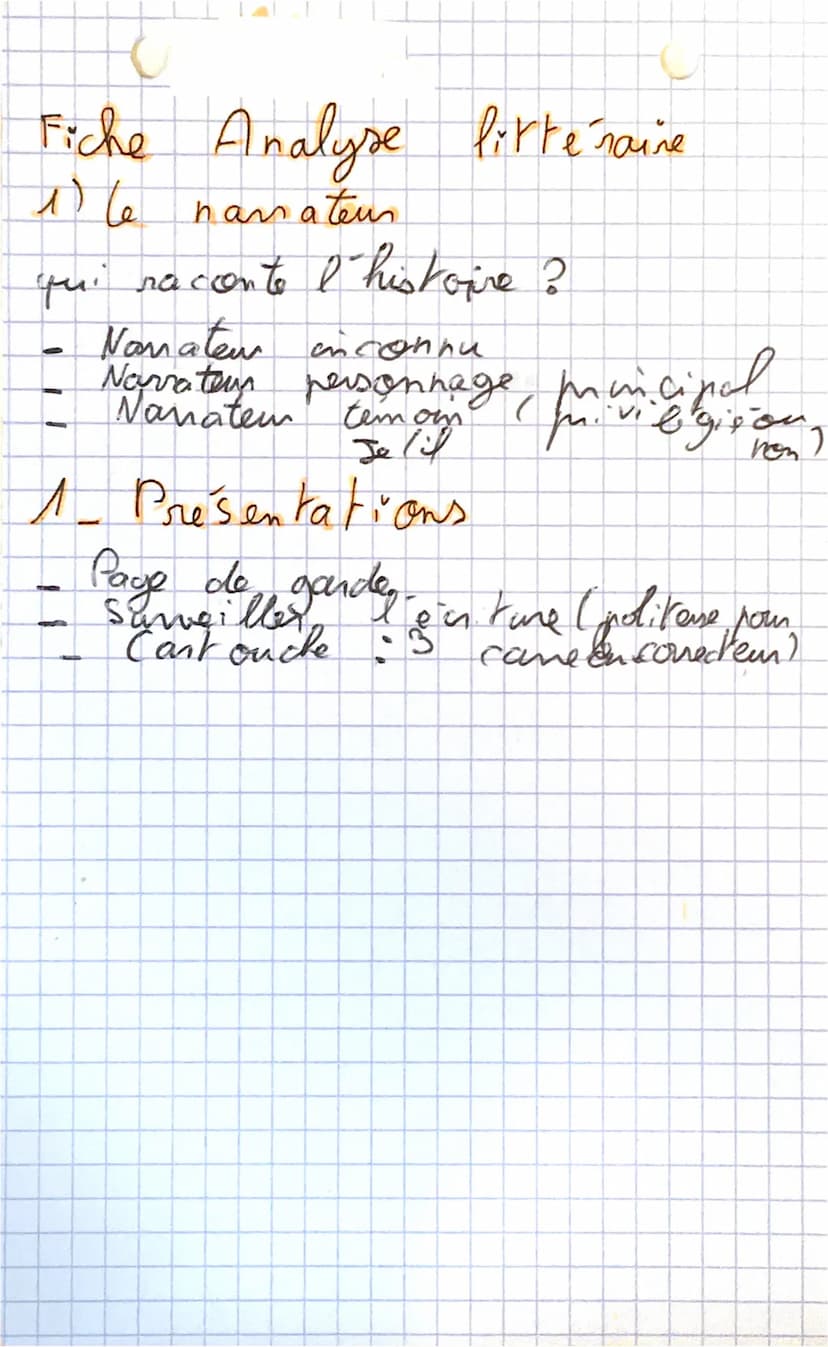 Fiche Analyse littéraire
1) Le narrateur
qui raconte l'histoire ?
- Narrateur inconnu
- Narrateur personnage principal
- Narrateur temoin (privilégié ou
Je/il non)
1- Présentations
- Page de garde
- Surveiller l'écriture (politesse pour
- Cartouche : 3 carreaux correcteur)